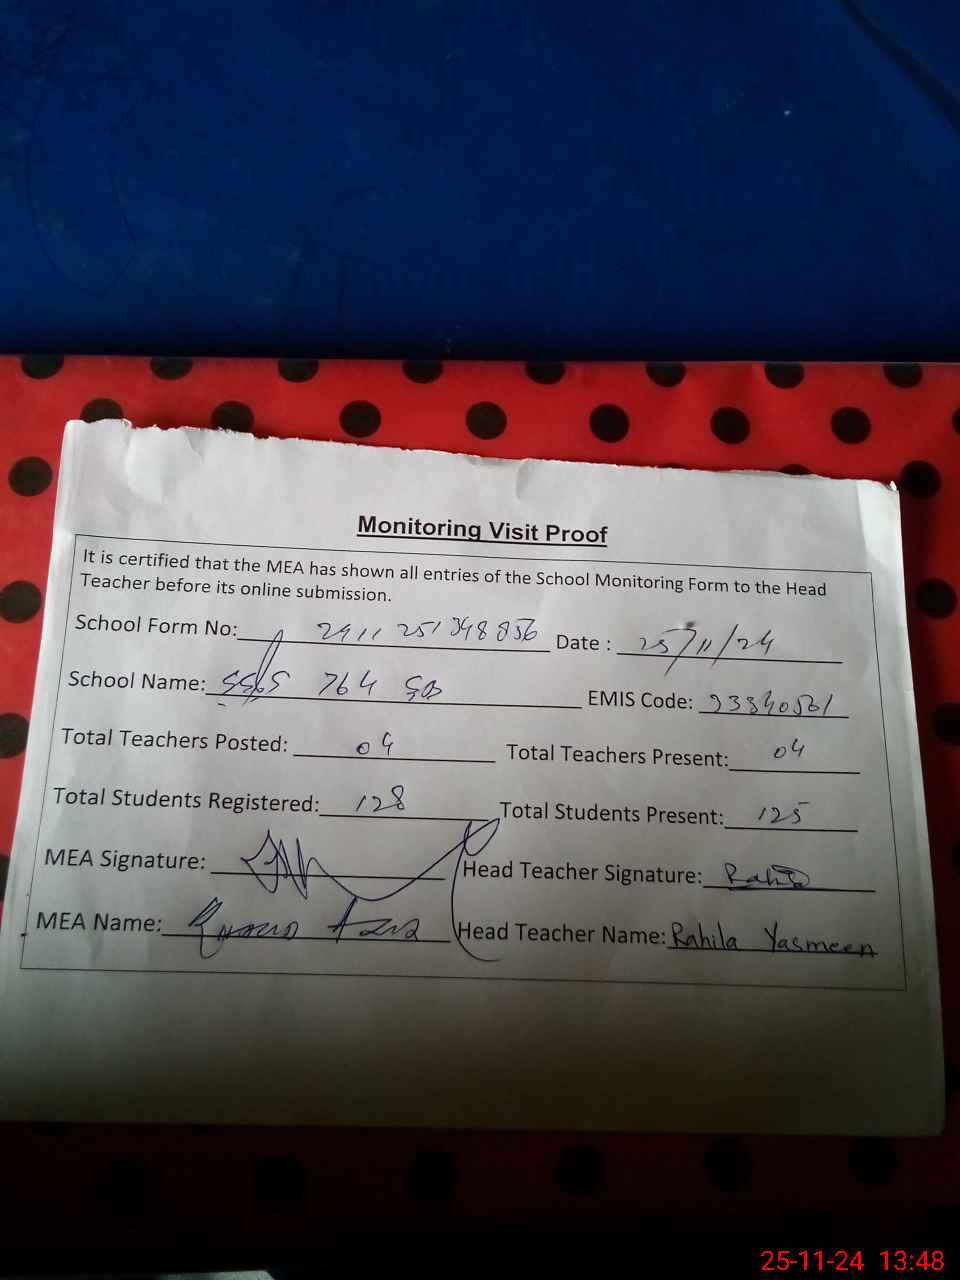 Monitoring Visit Proof
It is certified that the MEA has shown all entries of the School Monitoring Form to the Head
Teacher before its online submission.
School Form No: 2411251348056 Date : 25/11/24
School Name: 764 GB EMIS Code:
Total Teachers Posted: 04 Total Teachers Present: 04
Total Students Registered: 128 Total Students Present: 125
MEA Signature: Head Teacher Signature: Rahila
MEA Name: Head Teacher Name: Rahila Yasmeen
25-11-24 13:48